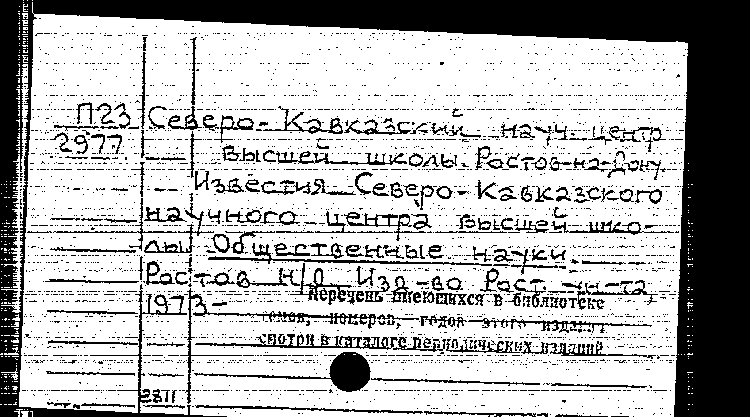 П23 Северо-Кавказский науч. центр
2977 высшей школы. Ростов-на-Дону.
Известия Северо-Кавказского
научного центра высшей шко-
лы. Общественные науки.
Ростов н/Д Изд-во Рост. ун-та,
1973-
Перечень имеющихся в библиотеке
томов, номеров, годов этого издания
смотри в каталоге периодических изданий
2311